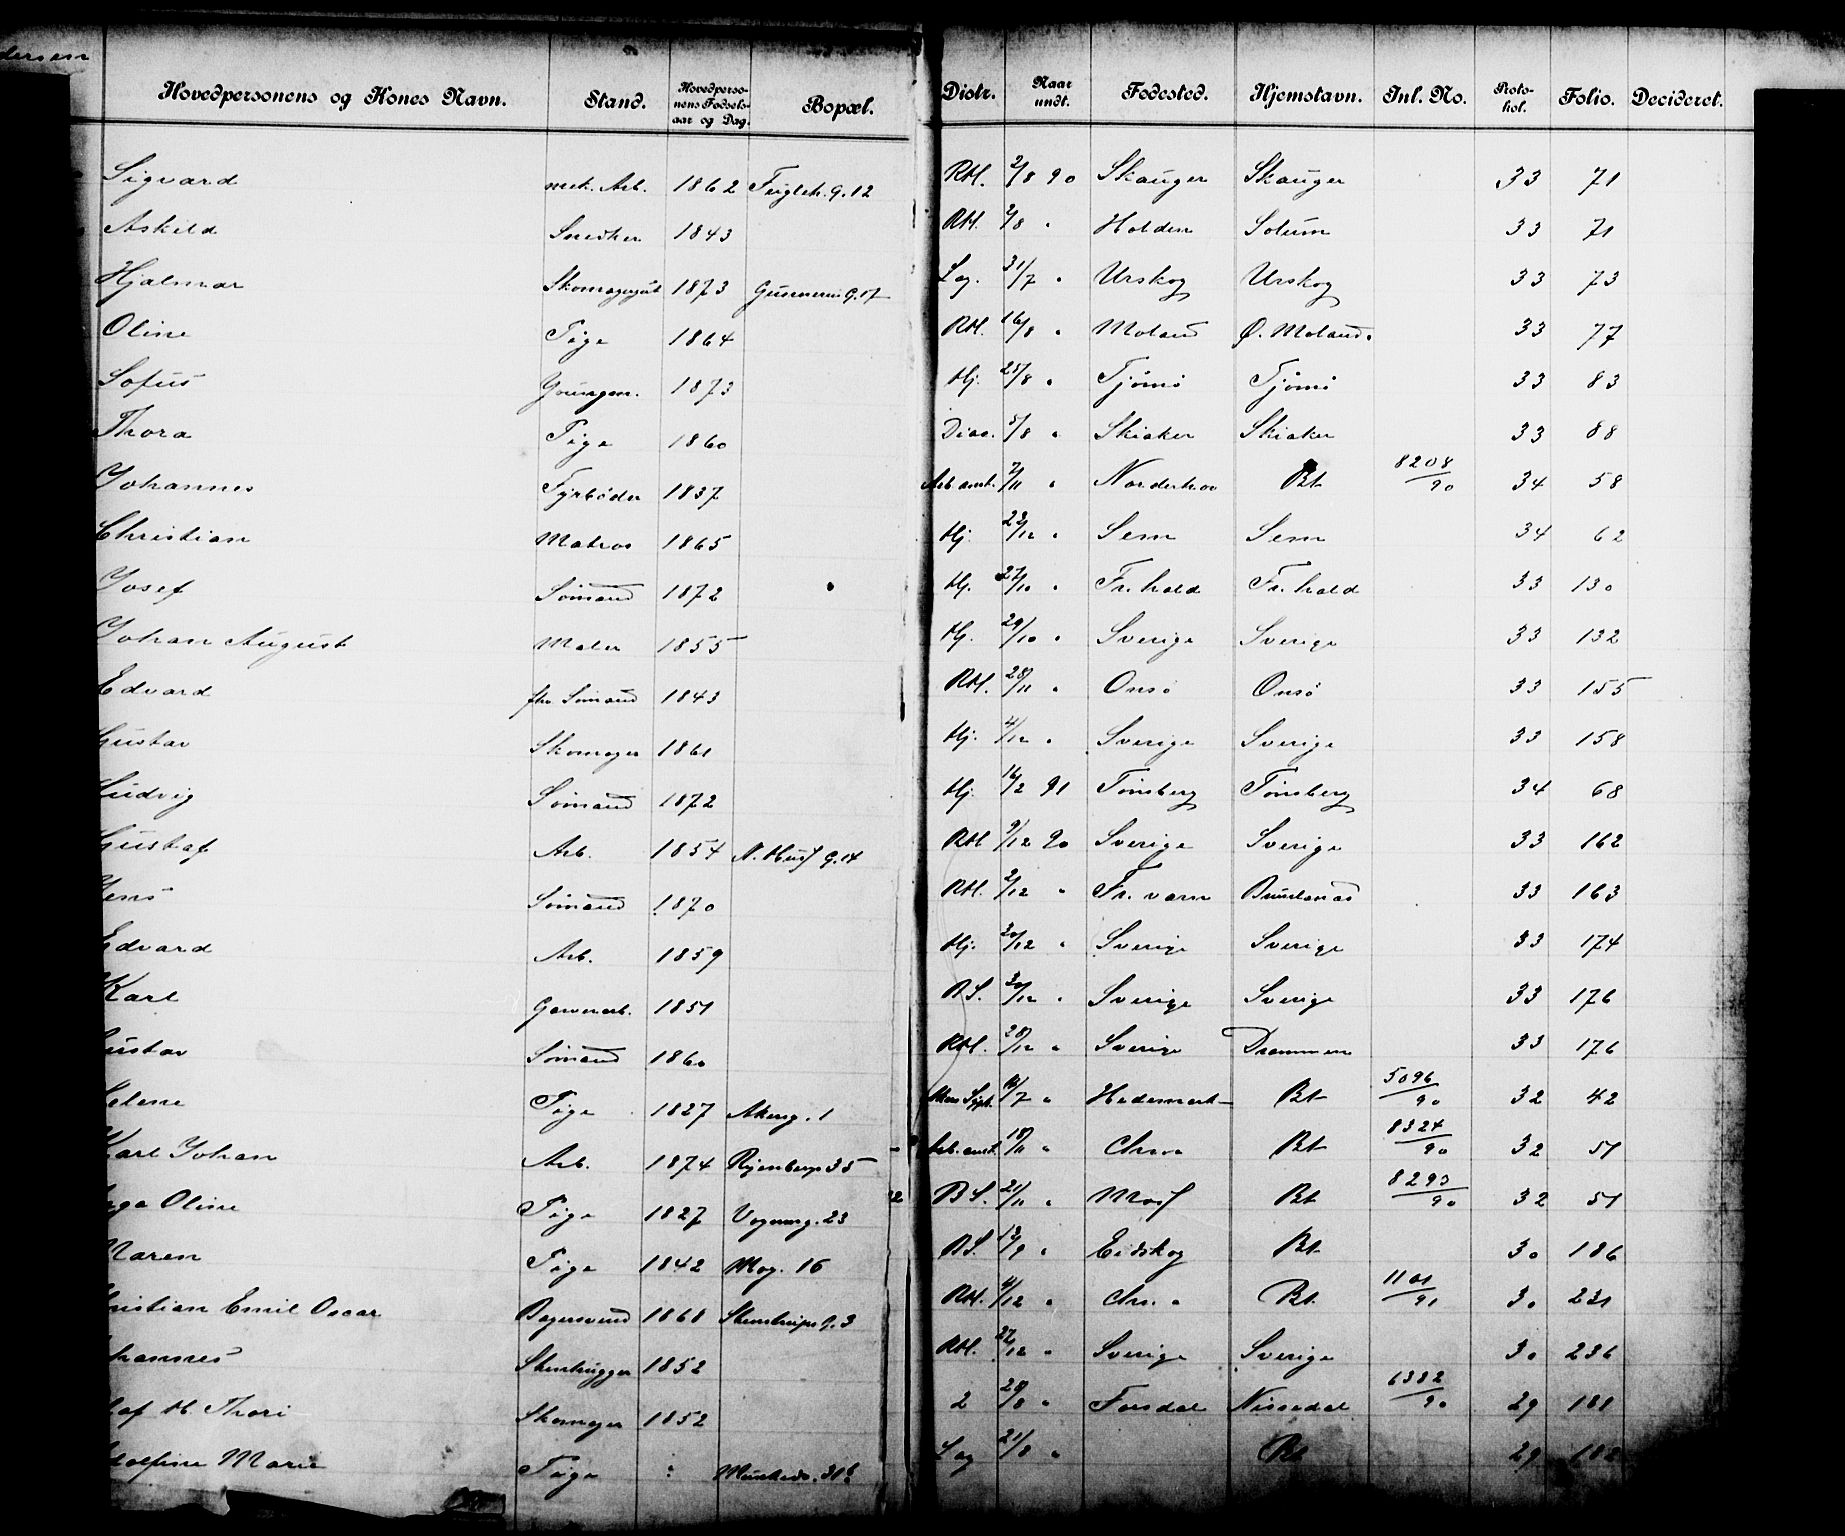 dersen
Hovedpersonens og Kones Navn. Stand. Hovedpersonens Fødselsaar og Dag. Bopæl. Distr. Naar undt. Fødested. Hjemstavn. Inl. No. Protokol. Folio. Decideret.
Sigvard mek. Arb. 1862 Fugleh. g. 12 RH. 2/8 90 Skauger Skauger 33 71
Askild Snedker 1843 RH. 2/8 " Holden Solum 33 71
Hjalmar Skomagergut 1873 Gunnerius g. 17 Lag. 31/7 " Urskog Urskog 33 73
Oline Pige 1864 RH. 16/8 " Moland Ø. Moland. 33 77
Sofus Youngm. 1873 Hj. 25/8 " Tjømø Tjømø 33 83
Thora Pige 1860 Diac. 5/8 " Skiaker Skiaker 33 88
Johannes Fyrbøder 1837 Arb. anst. 7/11 " Norderhov Bt 8208/90 34 58
Christian Matros 1865 Hj. 23/12 " Sem Sem 34 62
Josef Sømand 1872 Hj. 27/10 " Fr.hald Fr.hald 33 130
Johan August Maler 1855 Hj. 29/10 " Sverige Sverige 33 132
Edvard fhv. Sømand 1843 RH. 28/11 " Onsø Onsø 33 155
Gustav Skomager 1861 Hj. 4/12 " Sverige Sverige 33 158
Ludvig Sømand 1872 Hj. 16/2 91 Tønsberg Tønsberg 34 68
Gustaf Arb. 1854 N. Husf g. 14 RH 9/12 90 Sverige Sverige 33 162
Jens Sømand 1870 RH. 2/12 " Fr. værn Brunlanæs 33 163
Edvard Arb. 1859 Hj. 20/12 " Sverige Sverige 33 174
Karl Garverarb. 1851 BS. 30/12 " Sverige Sverige 33 176
Gustav Sømand 1860 RH. 28/12 " Sverige Drammen 33 176
Helene Pige 1827 Akersg. 1 /7 " Hedemark Bt 5096/90 32 42
Karl Johan Arb. 1874 Ryenbergs 35 Arb. anst. 18/11 " Chra. Bt 8324/90 32 51
Inga Oline Pige 1827 Vognmg. 23 BS. 21/11 " Moss Bt 8293/90 32 51
Maren Pige 1842 Møg. 16 BS. 12/9 " Eidskog Bt 30 186
ristian Emil Oscar Bagersvend 1868 Stenstrups g. 3 RH. 4/12 " Chra. Bt. 1101/91 30 231
ohannes Stenhugger 1852 RH. 27/12 " Sverige Sverige 30 236
laf H. Thori Skomager 1852 2 28/8 " Forsdal Nissedal 6382/90 29 181
dolfine Marie Pige " Munkeds. 31 Lag 21/8 " Bt 29 182